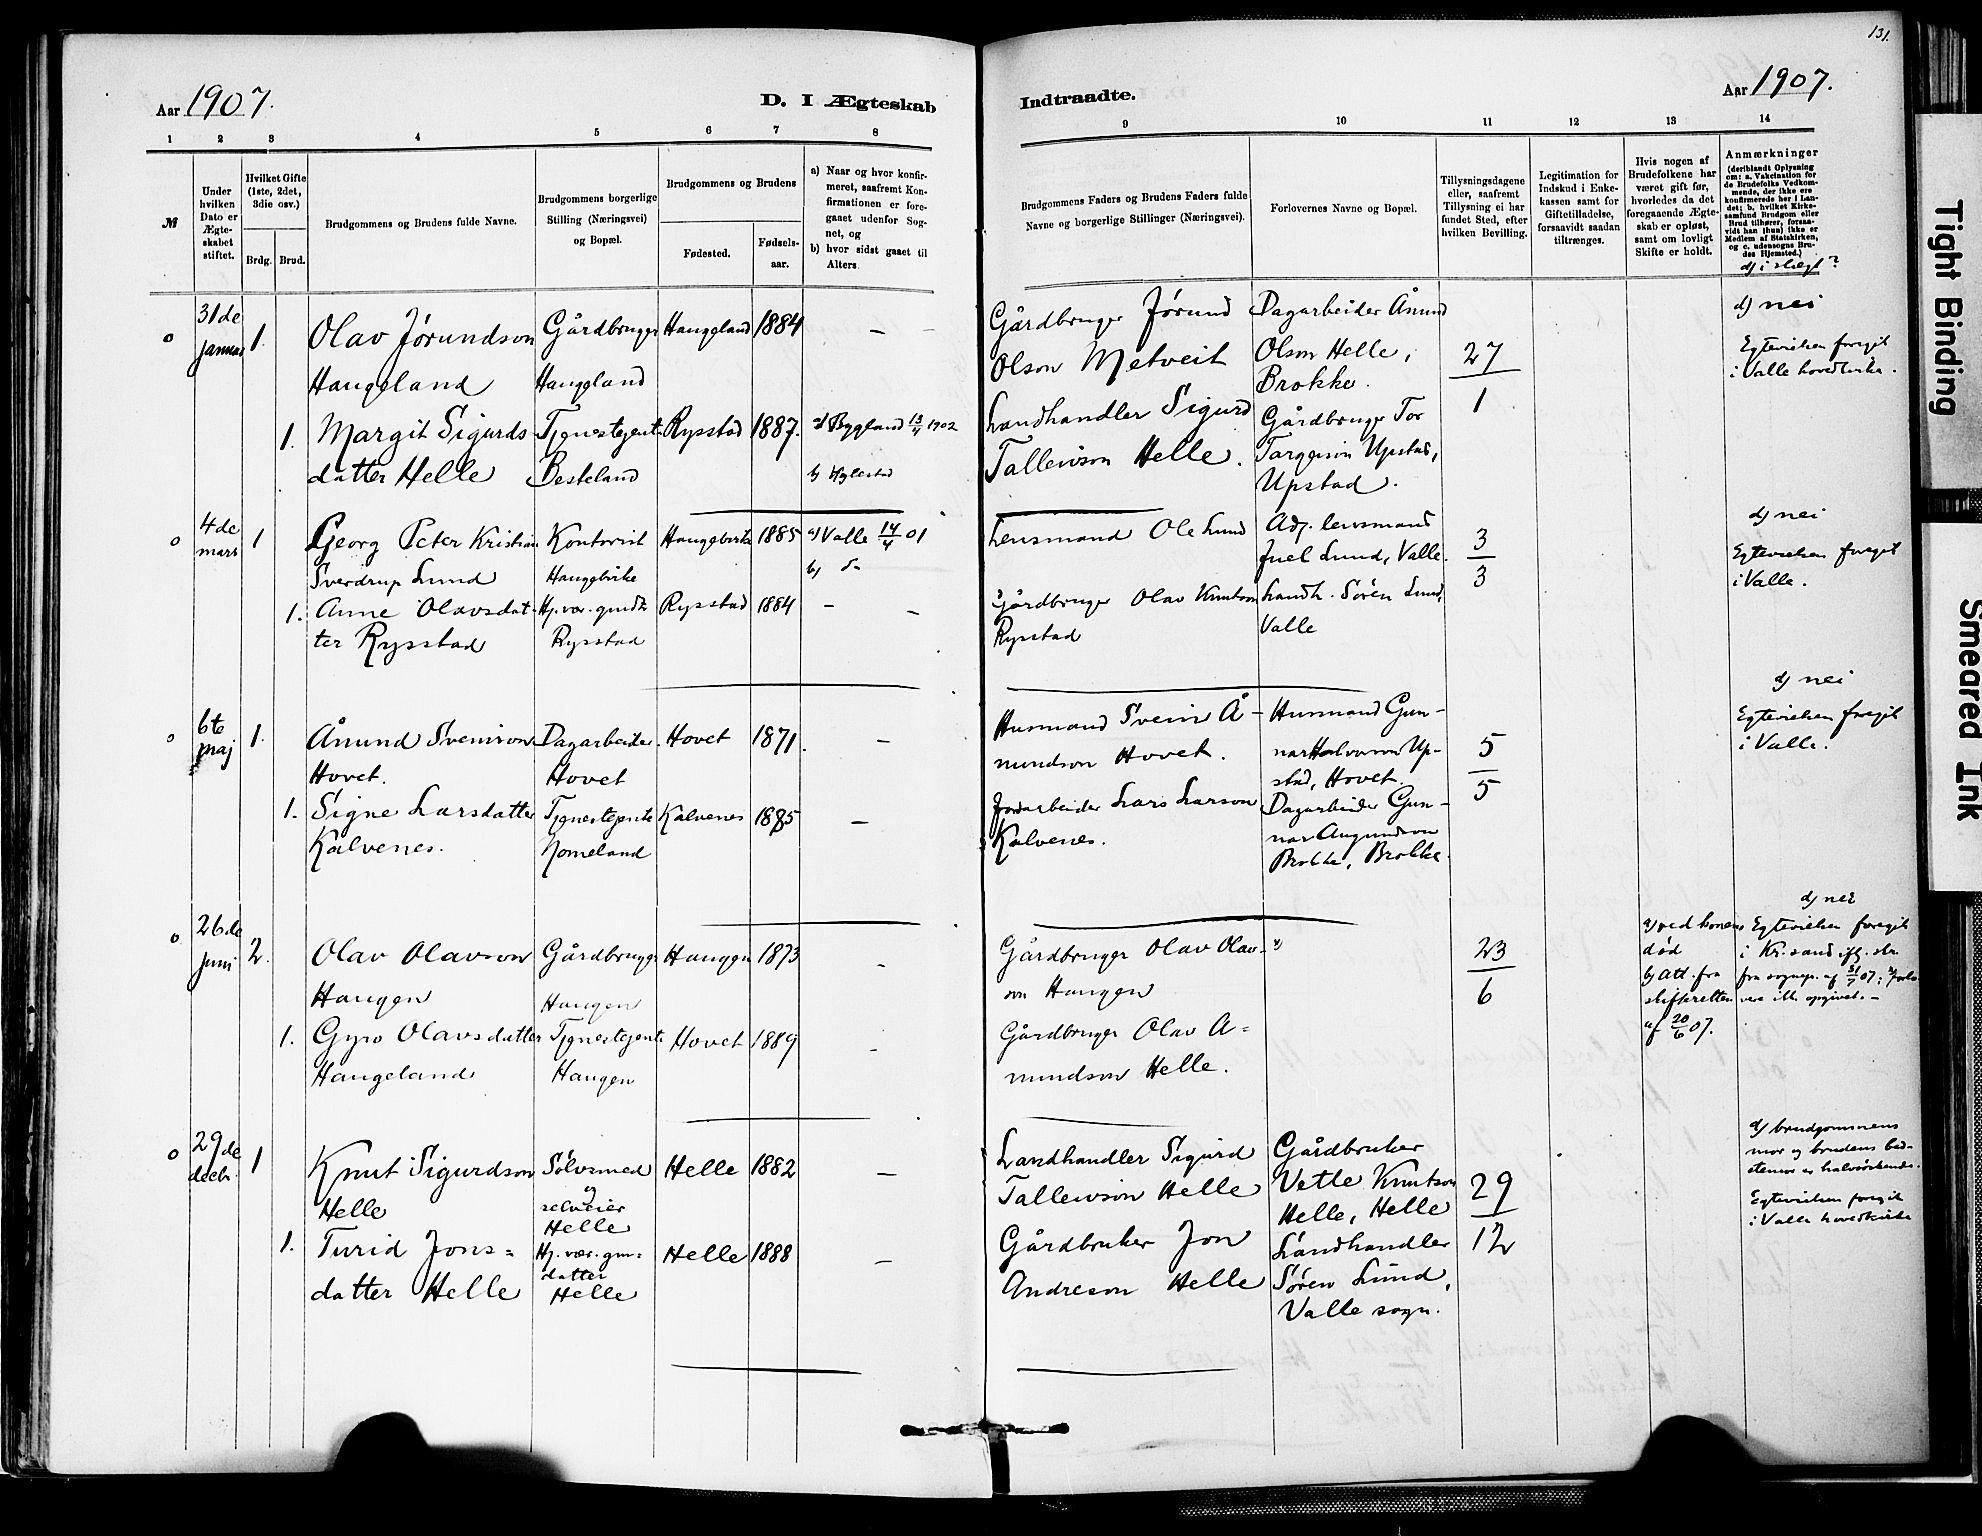 131.
Aar 1907.
D. I Ægteskab
Indtraadte.
Aar 1907.
1 2 3 4 5 6 7 8
9 10 11 12 13 14
№
Under hvilken Dato er Ægteskabet stiftet.
Hvilket Gifte (1ste, 2det, 3die osv.)
Brdg. Brud.
Brudgommens og Brudens fulde Navne.
Brudgommens borgerlige Stilling (Næringsvei) og Bopæl.
Brudgommens og Brudens
Fødested.
Fødselsaar.
a) Naar og hvor konfirmeret, saafremt Konfirmationen er foregaaet udenfor Sognet, og
b) hvor sidst gaaet til Alters.
Brudgommens Faders og Brudens Faders fulde Navne og borgerlige Stillinger (Næringsvei).
Forlovernes Navne og Bopæl.
Tillysningsdagene eller, saafremt Tillysning ei har fundet Sted, efter hvilken Bevilling.
Legitimation for Indskud i Enkekassen samt for Giftetilladelse, forsaavidt saadan tiltrænges.
Hvis nogen af Brudefolkene har været gift før, hvorledes da det foregaaende Ægteskab er opløst, samt om lovligt Skifte er holdt.
Anmærkninger
(deriblandt Oplysning om: a. Vakcination for de Brudefolks Vedkommende, der ikke ere konfirmerede her i Landet; b. hvilket Kirkesamfund Brudgom eller Brud tilhører, forsaavidt han (hun) ikke er Medlem af Statskirken, og c. udensogns Brudes Hjemsted.)
d) i slægt?
o 31de januar 1.
Olav Jørundson
Haugeland
Gårdbruger
Haugland
Haugland
1884
—
Gårdbruger Jørund
Olson Metveit
Dagarbeider Ånund
Olson Helle,
Brokke.
27
1
d) nei
Egtevielsen foregik
i Valle hovedkirke.
1. Margit Sigurds-
datter Helle
Tjenestejente
Besteland
Rysstad
1887.
a) Bygland 13/4 1902
b) Hylestad
Landhandler Sigurd
Tallewson Helle.
Gårdbruger Tor
Targeison Upstad,
Upstad.
o 4de mars 1
Georg Peter Kristian
Sverdrup Lund
Kontorist
Haugebirke
Haugebirke
1885
a) Valle 14/4 01
b) do
Lensmand Ole Lund
Adj. lensmand
Juel Lund, Valle.
3
3
d) nei
Egtevielsen foregik
i Valle.
1. Anne Olavsdat-
ter Rysstad
Hj. vær. grndtr
Rysstad
Rysstad
1884
—
—
Gårdbruger Olav Knutson
Rysstad
Landh. Sören Lund,
Valle
o 6te maj 1.
Ånund Sveinson
Hovet.
Dagarbeider
Hovet
Hovet
1871.
—
Husmand Svein Å-
nundson Hovet.
Husmand Gun-
nar Halvorson Up-
stad, Hovet.
5
5
d) nei
Egtevielsen foregik
i Valle.
1. Signe Larsdatter
Kalvenes.
Tjenestejente
Nomeland
Kalvenes
1885
—
Jordarbeider Lars Larson
Kalvenes.
Dagarbeider Gun-
nar Augundson
Brokke, Brokke.
o 26de juni 2.
Olav Olavson
Haugen
Gårdbruger
Haugen
Haugen
1873
—
Gårdbruger Olav Olav-
son Haugen
23
6
a) ved konens
død
b) att. fra
skifteretten
af 20/6 07.
d) nei
Egtevielsen foregik
i Kr.sand ifg. skr.
fra sognepr. af 31/7 07;
ikke opgivet. —
1. Gyro Olavsdatter
Haugeland
Tjenestejente
Haugen
Hovet
1889
—
Gårdbruger Olav A=
nundson Helle.
o 29de decbr. 1
Knut Sigurdson
Helle
Sölvsmed
og
selveier
Helle
Helle
1882
—
Landhandler Sigurd
Tallewson Helle
Gårdbruker
Vetle Knutson
Helle, Helle
29
12
d) brudgommens
mor og brudens bed-
stemor er halvsöskende.
Egtevielsen foregik
i Valle hovedkirke
1. Turid Jons=
datter Helle
Hj. vær. grn=
datter
Helle
Helle
1888
—
Gårdbruker Jon
Andreson Helle
Landhandler
Sören Lund,
Valle sogn.
Tight Binding
Smeared Ink